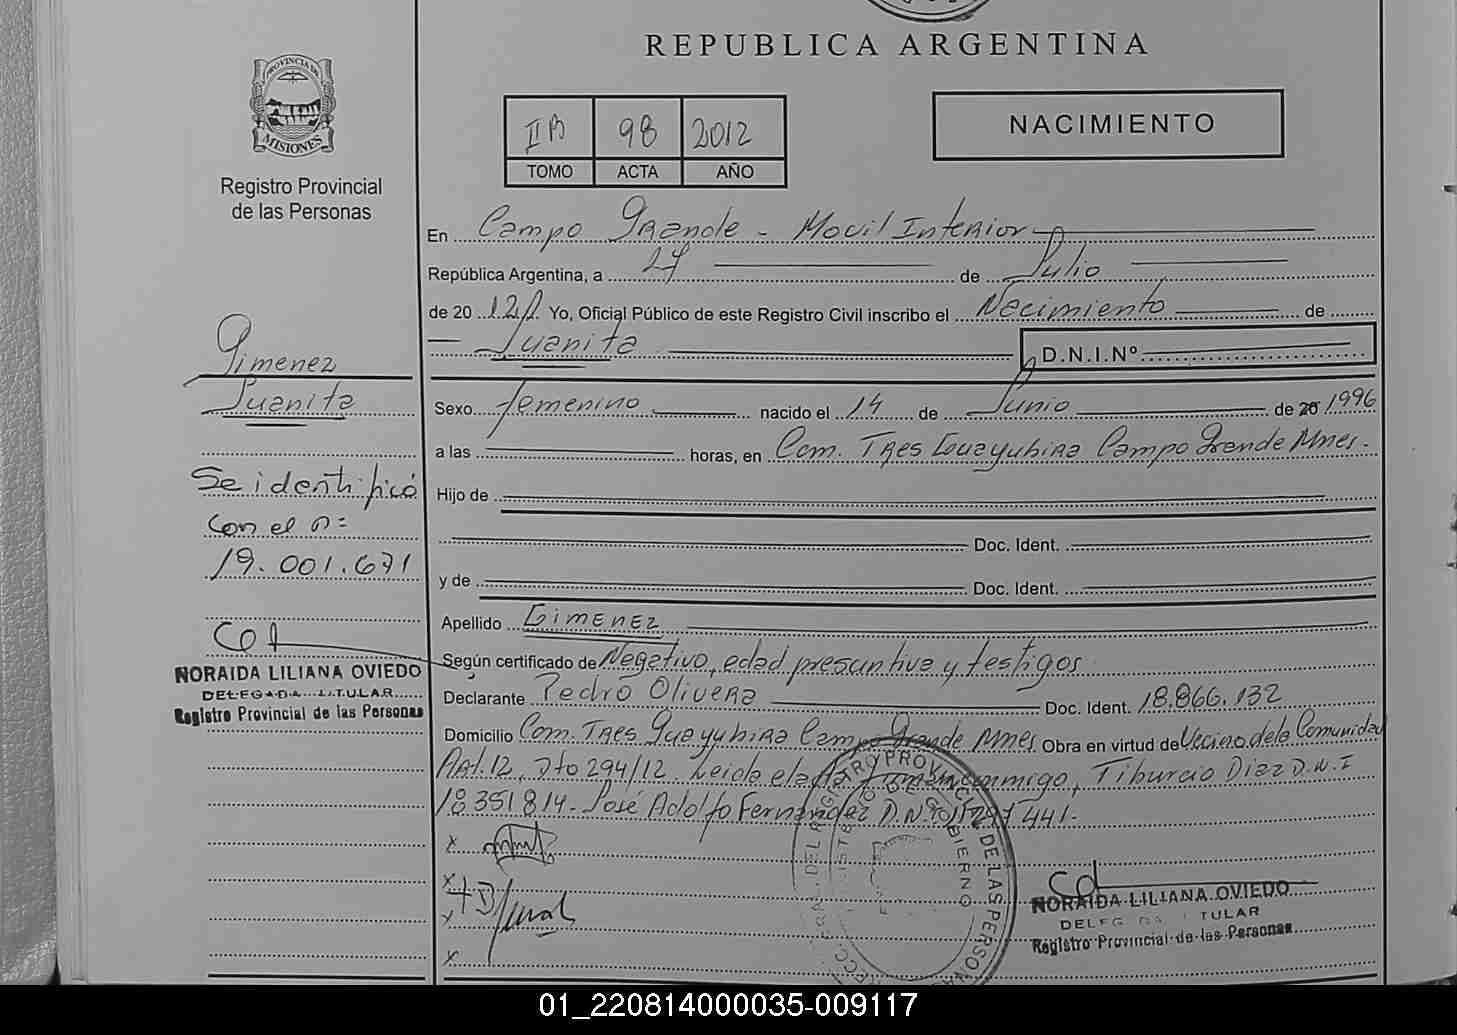 REPUBLICA ARGENTINA
PROVINCIA DE
MISIONES
Registro Provincial
de las Personas
II B 98 2012
TOMO ACTA AÑO
NACIMIENTO
En Campo Grande - Movil Interior
República Argentina, a 27 de Julio
de 20 12 Yo, Oficial Público de este Registro Civil inscribo el Nacimiento de
Juanita D.N.I.Nº
Gimenez
Juanita
Se identificó
con el nº
19.001.671
NORAIDA LILIANA OVIEDO
DELEGADA TITULAR
Registro Provincial de las Personas
Sexo femenino nacido el 14 de Junio de 20 1996
a las horas, en Com. Tres Guayubira Campo Grande Mnes.
Hijo de
Doc. Ident.
y de Doc. Ident.
Apellido Gimenez
Según certificado de Negativo, edad presuntiva y testigos
Declarante Pedro Olivera Doc. Ident. 18.866.132
Domicilio Com. Tres Guayubira Campo Grande Mnes Obra en virtud de Vecino de la Comunidad
Art. 12, Dto 294/12. Leida el acta conmigo, Tiburcio Diaz D.N.I
18351814- José Adolfo Fernandez D.N.I
x
x
x
x
NORAIDA LILIANA OVIEDO
DELEGADA TITULAR
Registro Provincial de las Personas
01_220814000035-009117